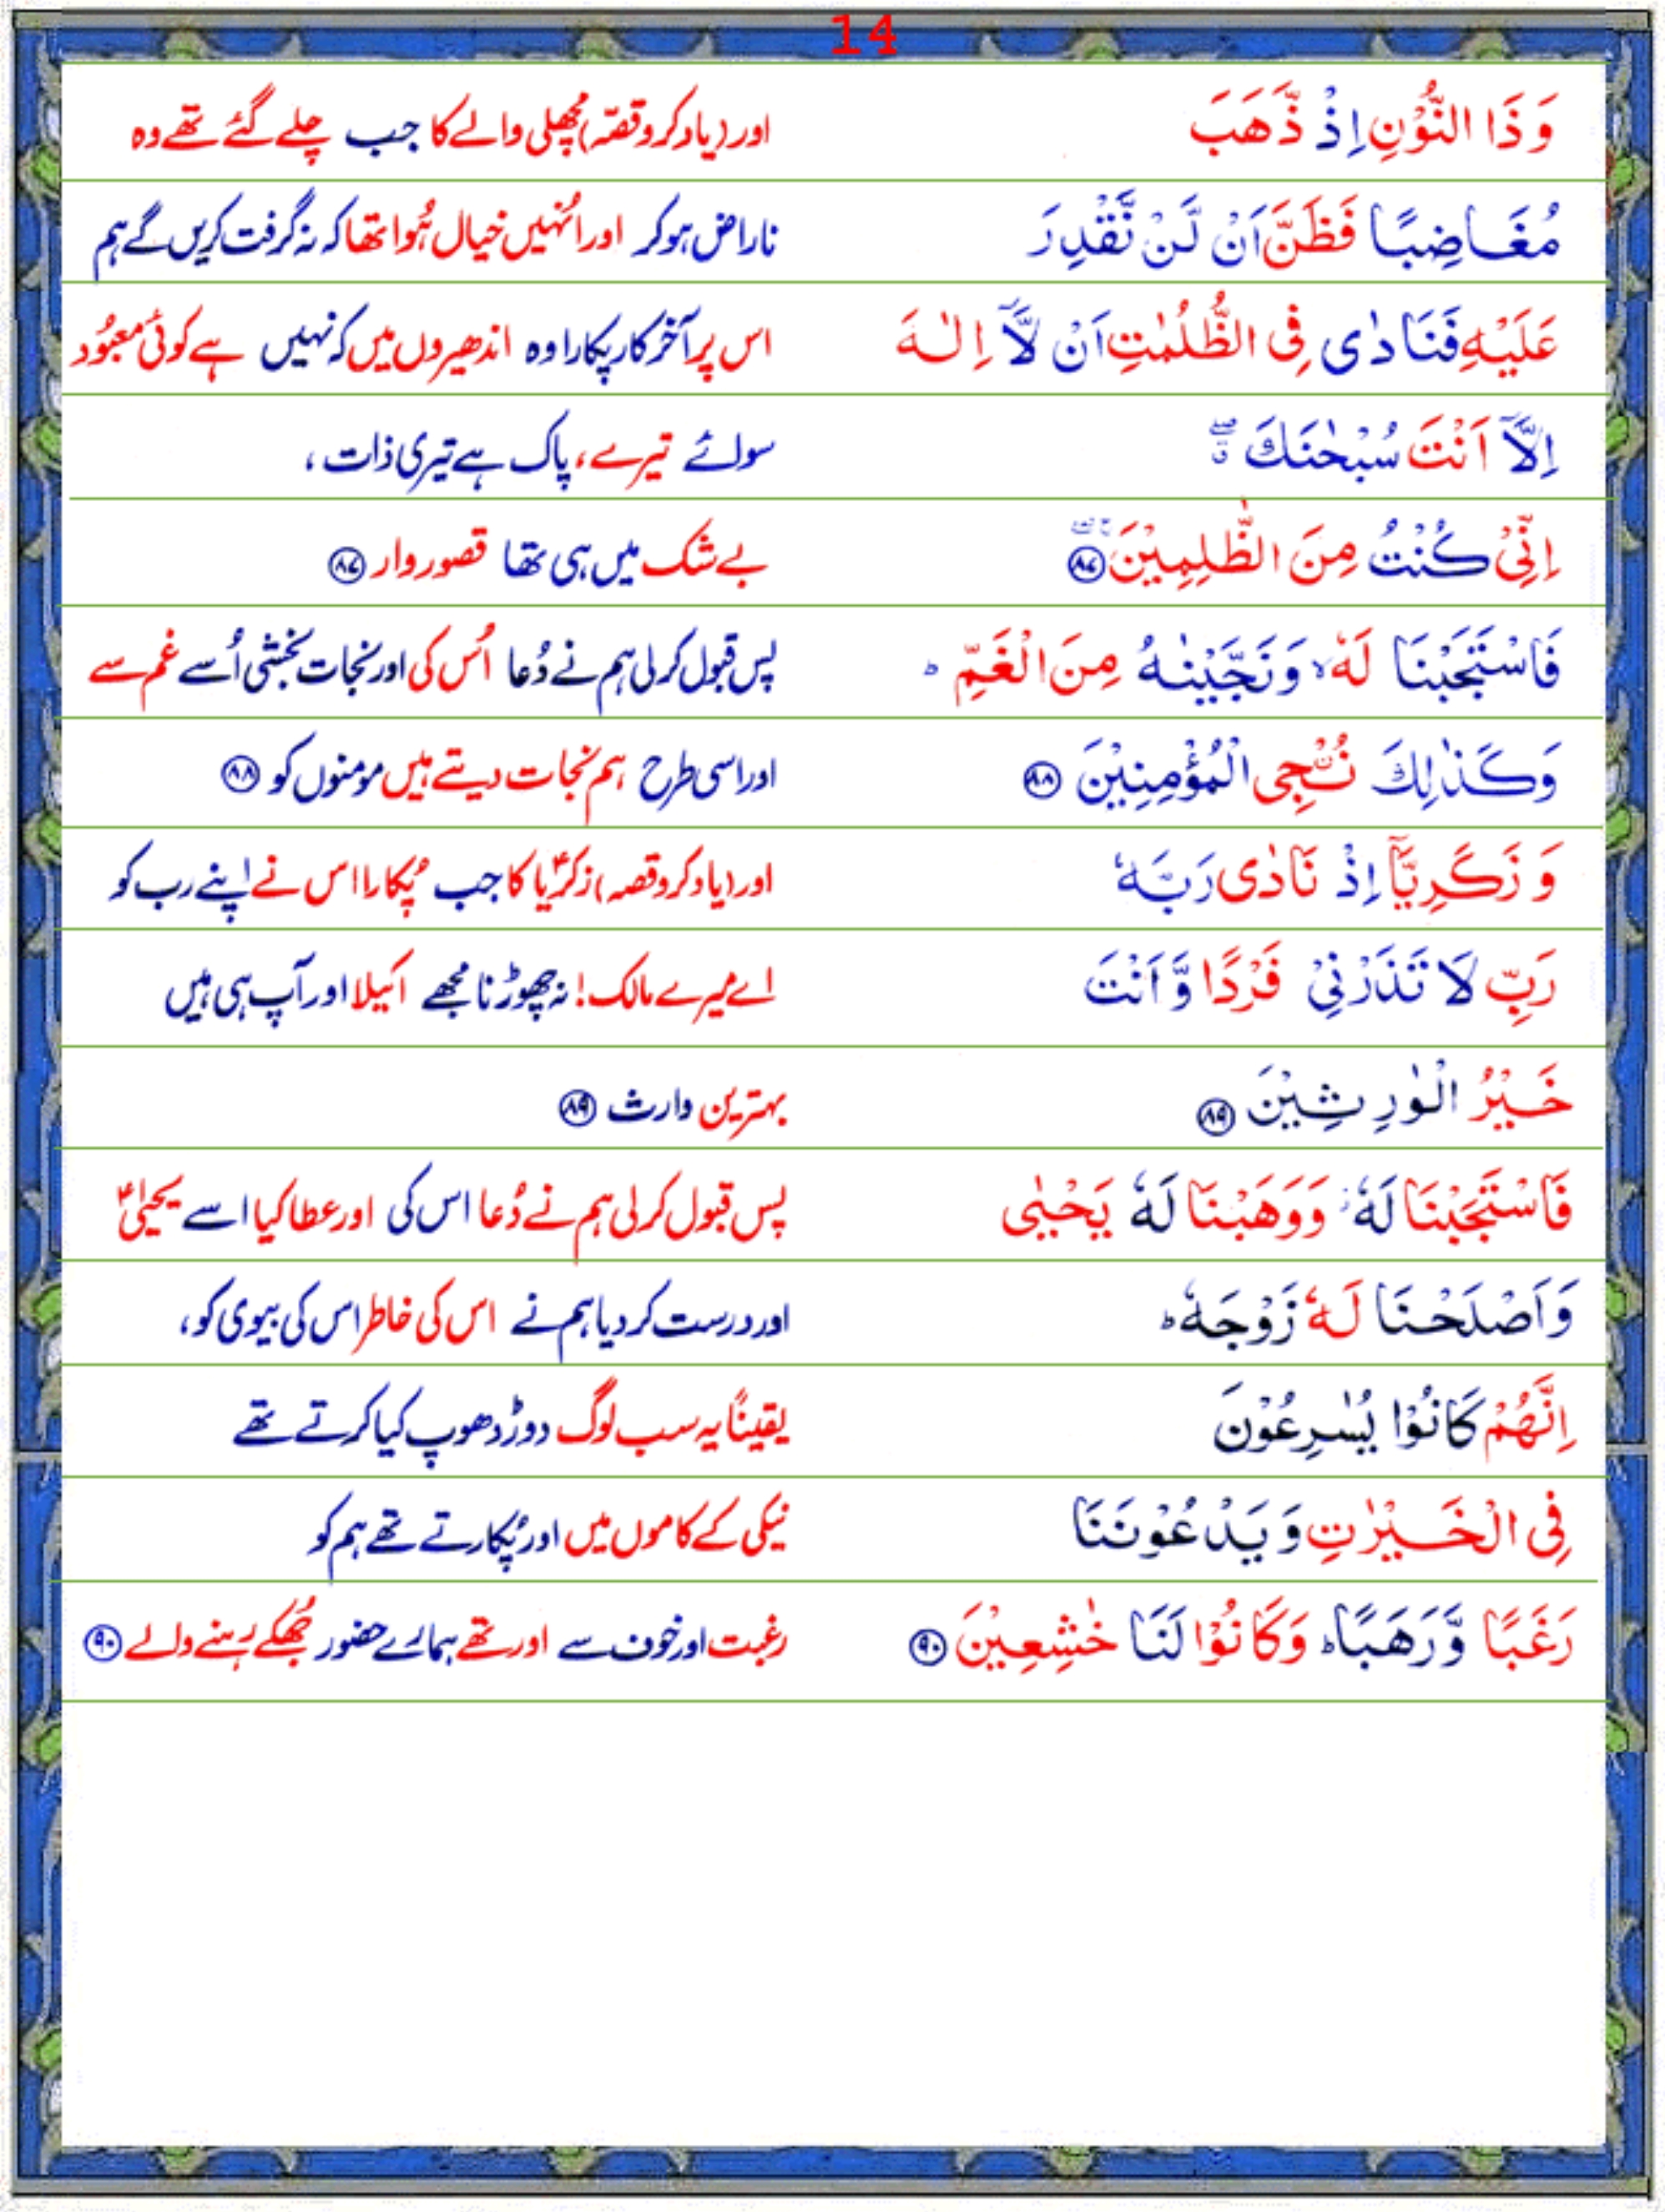 14
وَذَا النُّوْنِ اِذْ ذَّهَبَ اور (یاد کرو قصّہ) مچھلی والے کا جب چلے گئے تھے وہ
مُغَاضِبًا فَظَنَّ اَنْ لَّنْ نَّقْدِرَ ناراض ہو کر اور اُنہیں خیال ہُوا تھا کہ نہ گرفت کریں گے ہم
عَلَيْهِ فَنَادٰى فِى الظُّلُمٰتِ اَنْ لَّاۤ اِلٰهَ اس پر آخر کار پکارا وہ اندھیروں میں کہ نہیں ہے کوئی معبُود
اِلَّاۤ اَنْتَ سُبْحٰنَكَ ۖۗ سوائے تیرے، پاک ہے تیری ذات ،
اِنِّىْ كُنْتُ مِنَ الظّٰلِمِيْنَ ۚۖ ٨٧ بے شک میں ہی تھا قصور وار ٨٧
فَاسْتَجَبْنَا لَهٗ ۙ وَنَجَّيْنٰهُ مِنَ الْغَمِّ ؕ پس قبول کر لی ہم نے دُعا اُس کی اور نجات بخشی اُسے غم سے
وَكَذٰلِكَ نُـنْجِى الْمُؤْمِنِيْنَ ٨٨ اور اسی طرح ہم نجات دیتے ہیں مومنوں کو ٨٨
وَ زَكَرِيَّاۤ اِذْ نَادٰى رَبَّهٗ اور (یاد کرو قصہ) زکریاؑ کا جب پُکارا اس نے اپنے رب کو
رَبِّ لَا تَذَرْنِىْ فَرْدًا وَّ اَنْتَ اے میرے مالک! نہ چھوڑنا مجھے اکیلا اور آپ ہی ہیں
خَيْرُ الْوٰرِثِيْنَ ٨٩ بہترین وارث ٨٩
فَاسْتَجَبْنَا لَهٗ ۚ وَوَهَبْنَا لَهٗ يَحْيٰى پس قبول کر لی ہم نے دُعا اس کی اور عطا کیا اسے یحییٰؑ
وَاَصْلَحْنَا لَهٗ زَوْجَهٗ ؕ اور درست کر دیا ہم نے اس کی خاطر اس کی بیوی کو،
اِنَّهُمْ كَانُوْا يُسٰرِعُوْنَ یقیناً یہ سب لوگ دوڑ دھوپ کیا کرتے تھے
فِى الْخَيْرٰتِ وَ يَدْعُوْنَنَا نیکی کے کاموں میں اور پُکارتے تھے ہم کو
رَغَبًا وَّ رَهَبًا ؕ وَكَانُوْا لَنَا خٰشِعِيْنَ ٩٠ رغبت اور خوف سے اور تھے ہمارے حضور جُھکے رہنے والے ٩٠